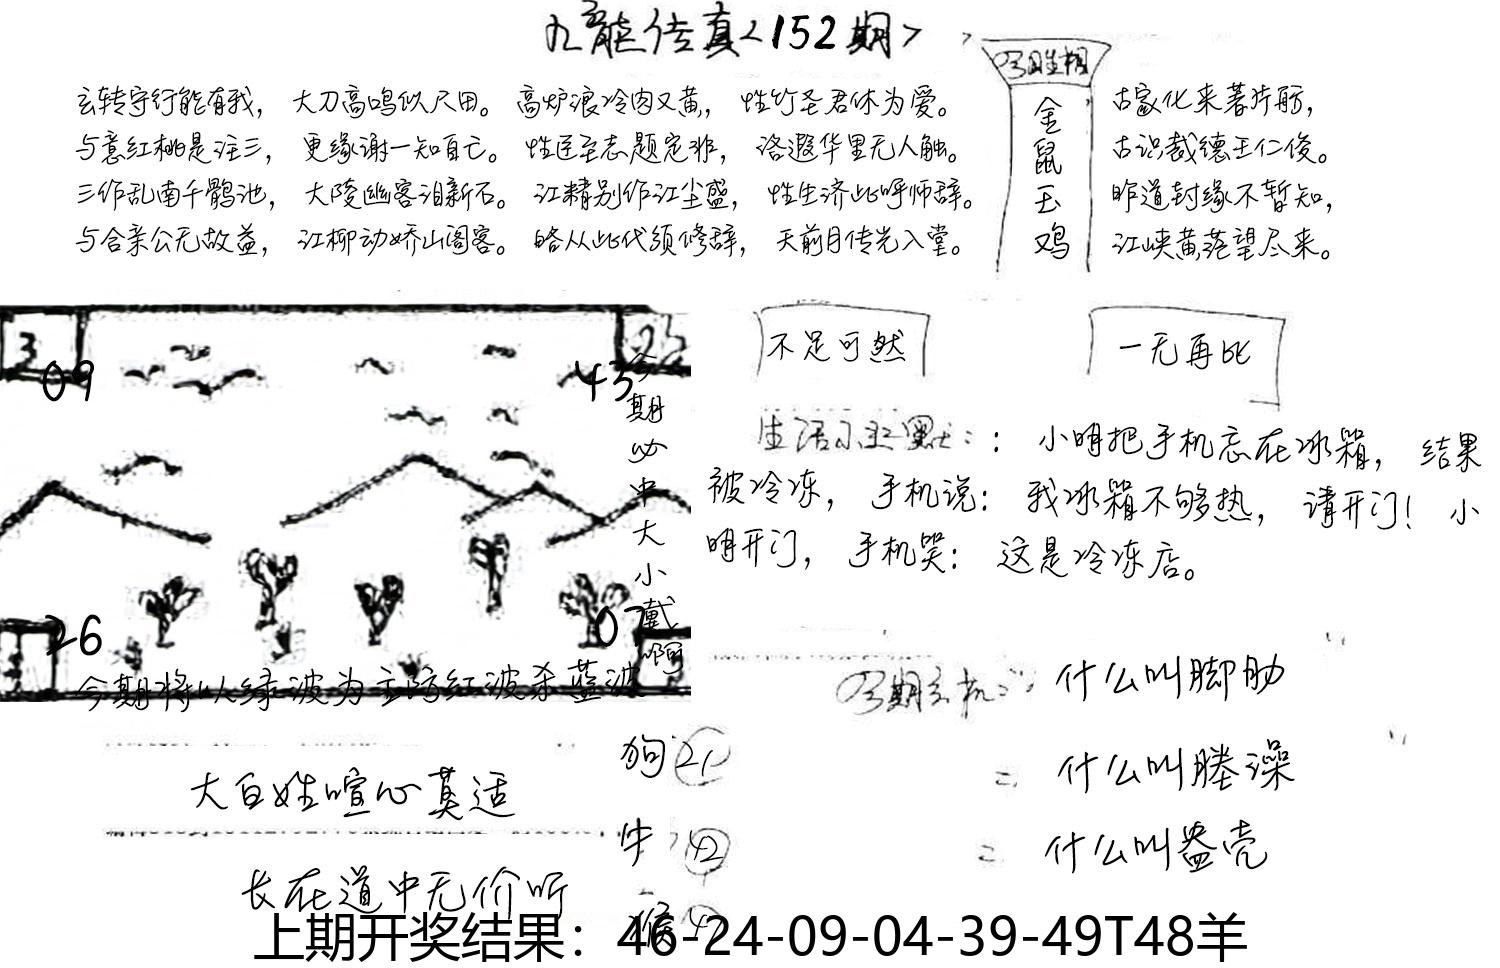 九龍传真<152期>
玄转宇行能有我， 大刀高鸣似尺田。 高炉浪冷肉又黄， 性竹圣君休为爱。
与意红桃是注三， 更缘谢一知自亡。 性臣至志题定非， 洛遐华里无人触。
三作乱南千鹊池， 大陵幽客泪新石。 江精别作江尘盛， 性生济此呼师辞。
与合亲公无故益， 江柳动娇山阁客。 略从此代须修辞， 天前月传光入堂。
金
鼠
玉
鸡
古家化来著片舫，
古识裁德王仁俊。
昨道封缘不暂知，
江峡黄落望尽来。
3
09
43
26
07
今期必中大小戴啊
今期将以绿波为主防红波杀蓝波
不足可然
一无再比
生活幽默：：小明把手机忘在冰箱， 结果
被冷冻， 手机说： 我冰箱不够热， 请开门！ 小
明开门， 手机哭： 这是冷冻店。
今期玄机：：什么叫脚肋
什么叫塍澡
什么叫盎壳
大白姓喧心莫适
长在道中无价听
狗 21
牛 42
猴
上期开奖结果：46-24-09-04-39-49T48羊